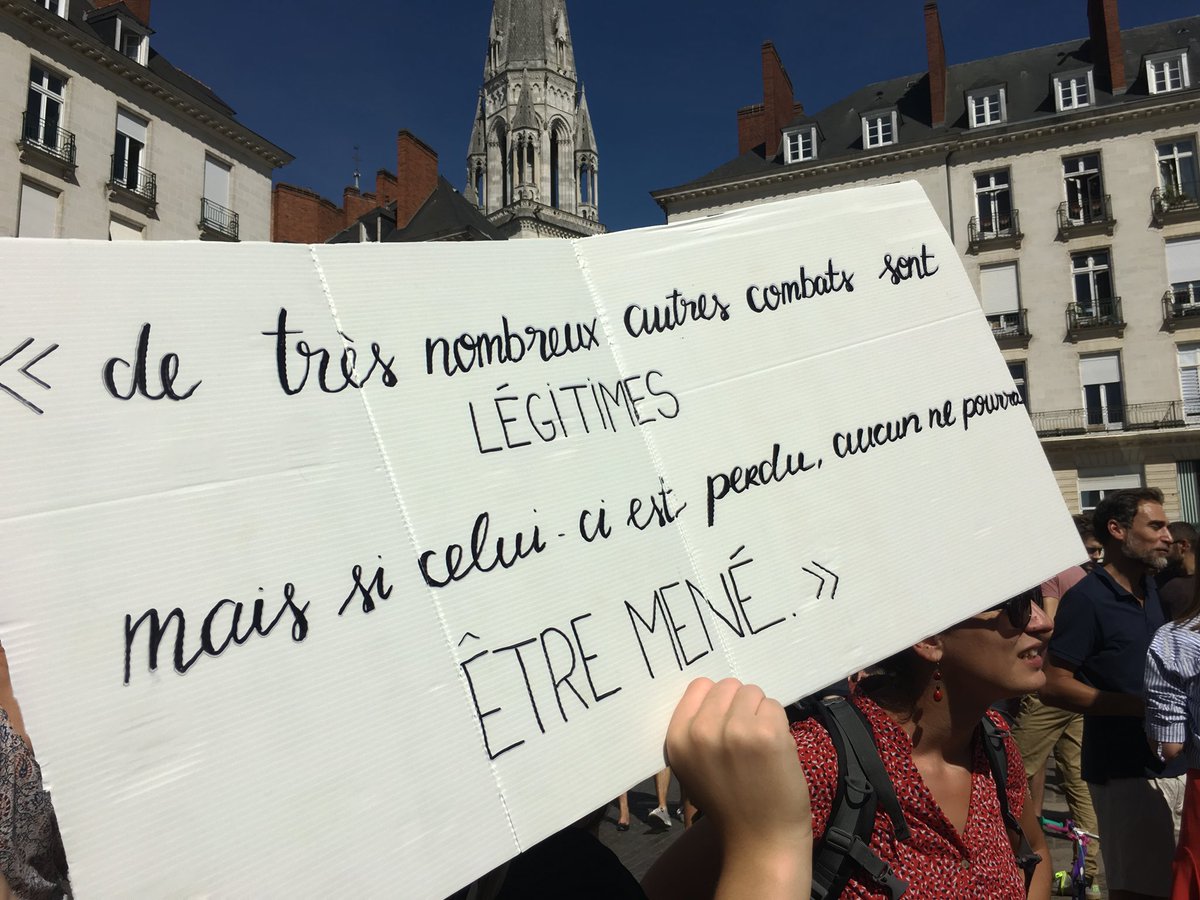 « de très nombreux autres combats sont
LÉGITIMES
mais si celui-ci est perdu, aucun ne pourra
ÊTRE MENÉ. »